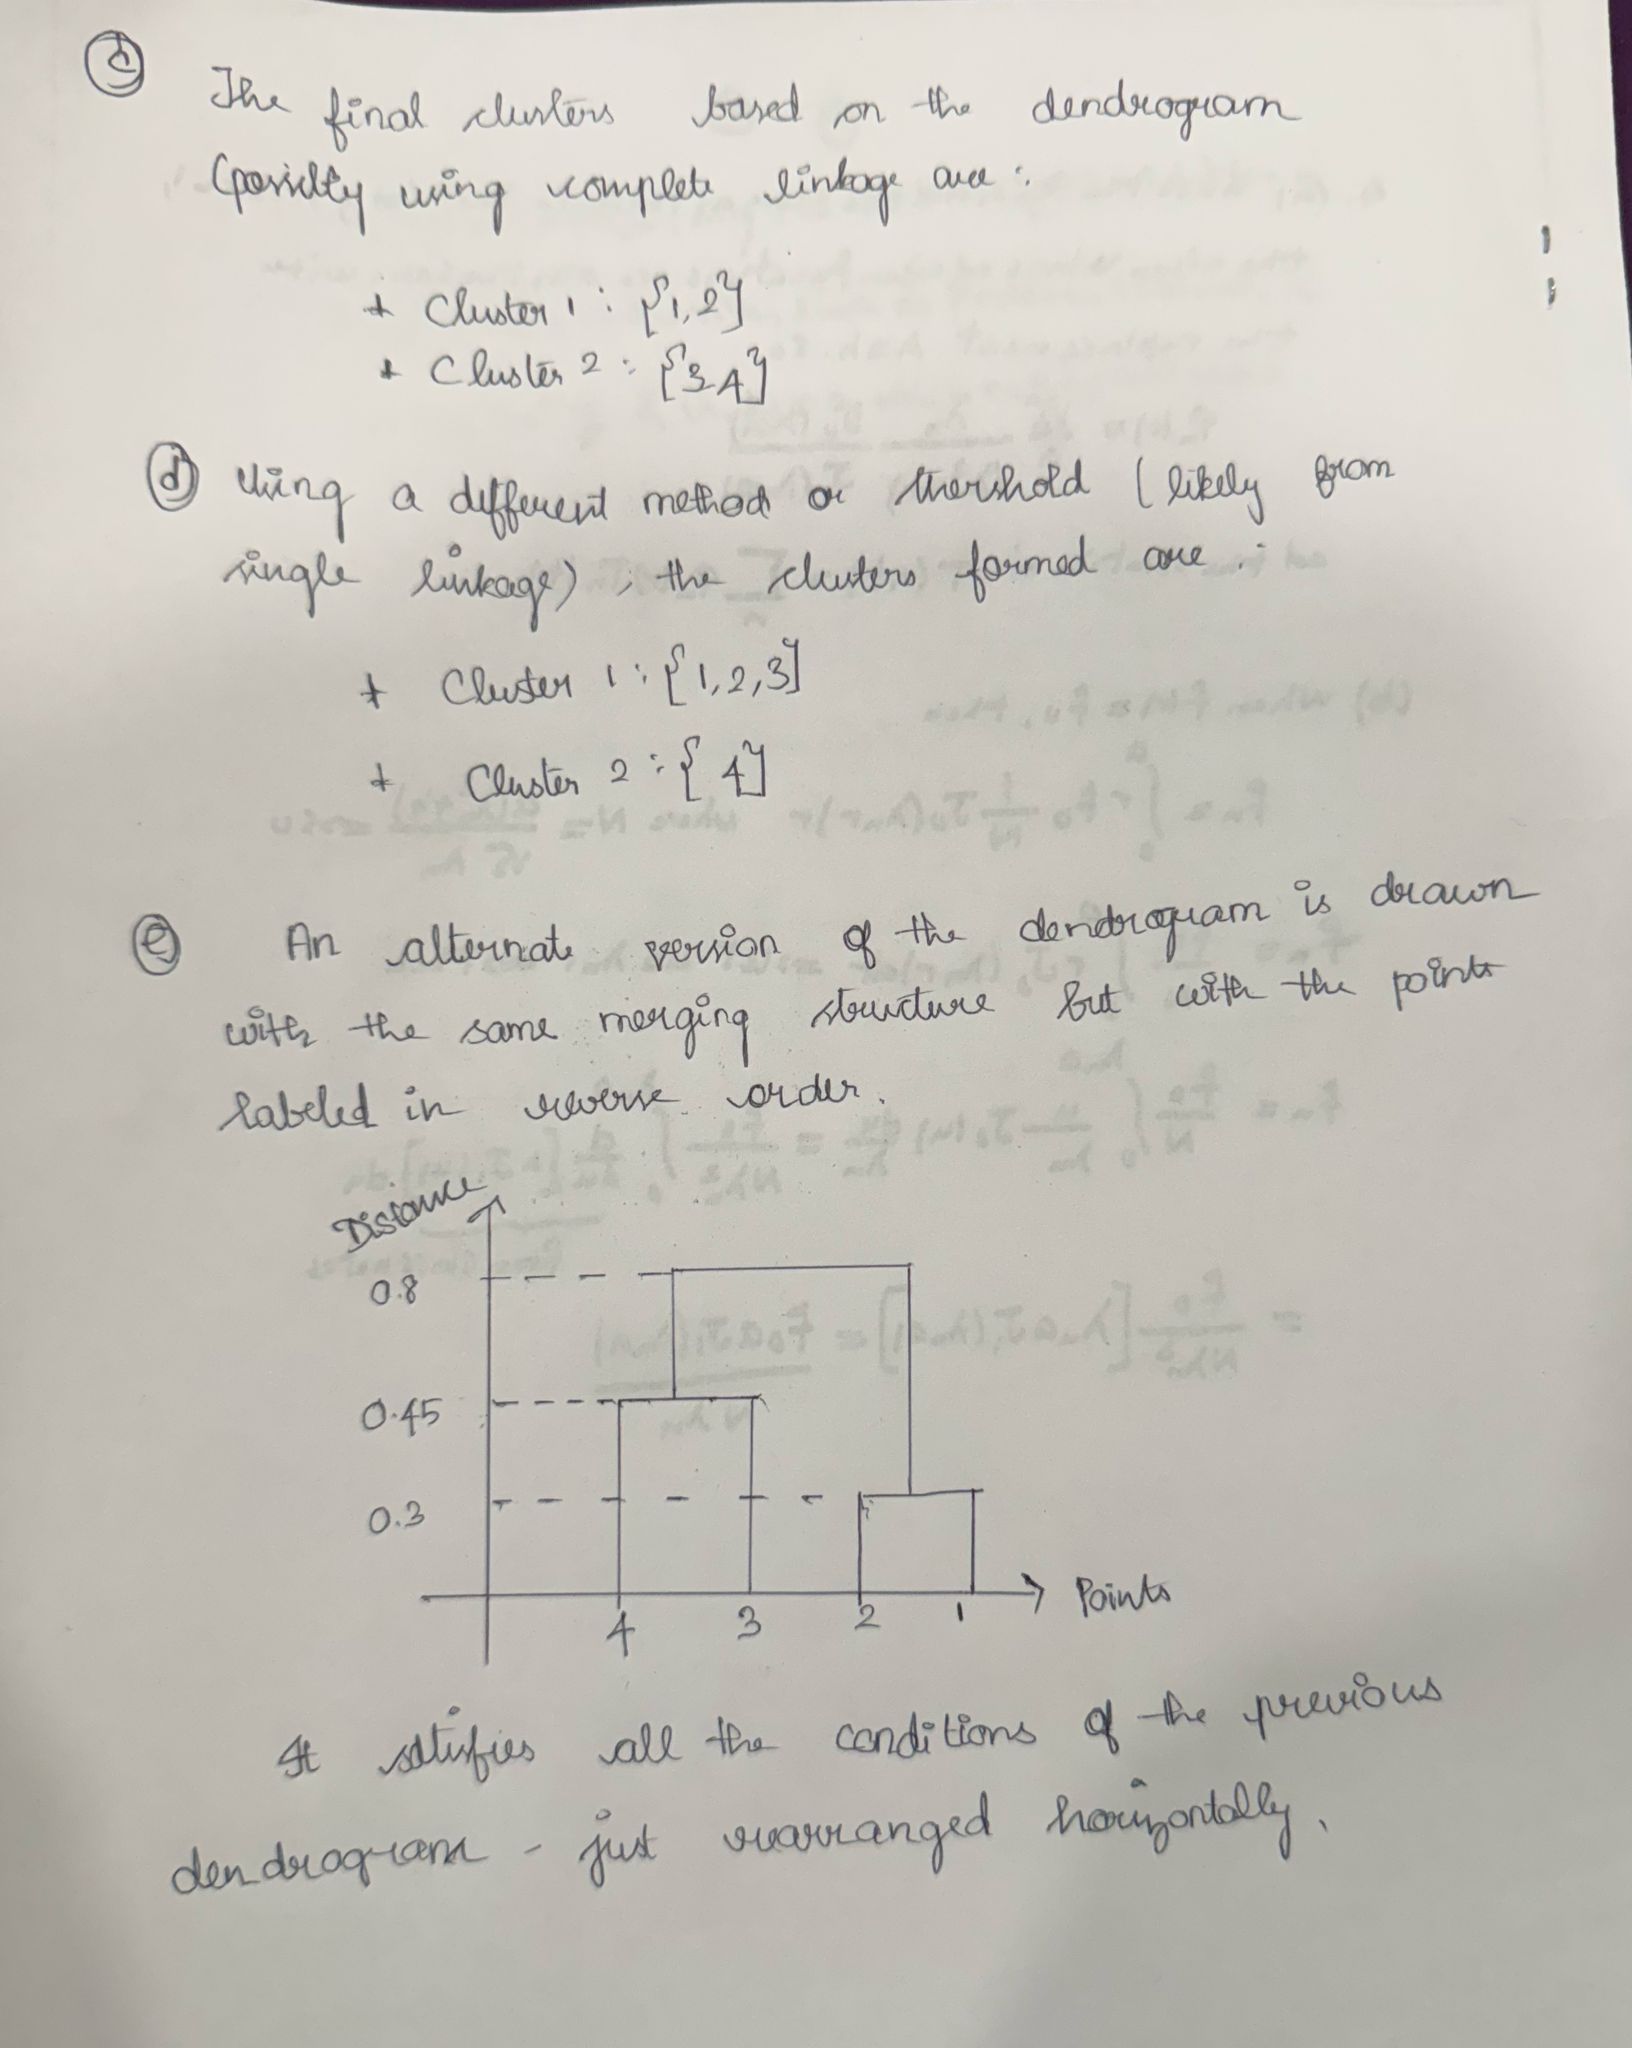 c
The final clusters based on the dendrogram
(possibly using complete linkage are:
+ Cluster 1 : {1,2}
+ Cluster 2 : {3,4}
d Using a different method or thershold (likely from
single linkage), the clusters formed are :
+ Cluster 1 : {1,2,3}
+ Cluster 2 : {4}
e An alternate version of the dendrogram is drawn
with the same merging structure but with the points
labeled in reverse order.
Distance
0.8
0.45
0.3
4 3 2 1 Points
It satisfies all the conditions of the previous
dendrogram - just rearranged horizontally.